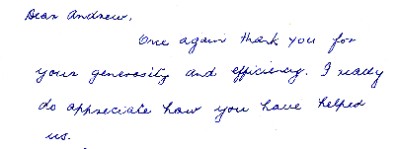 Dear Andrew,
Once again thank you for
your generosity and efficiency. I really
do appreciate how you have helped
us.